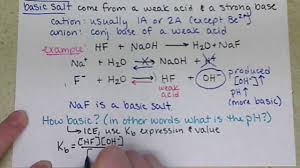 basic salt come from a weak acid & a strong base
cation: usually 1A or 2A (except Be²⁺)
anion: conj base of a weak acid
example: HF + NaOH → H₂O + NaF
Na⁺ + F⁻ + H₂O → HF + OH⁻
weak acid
produced
NaF is a basic salt.
How basic? (in other words what is the pH?)
↳ ICE, use Kb expression & value
Kb = [HF][OH⁻]